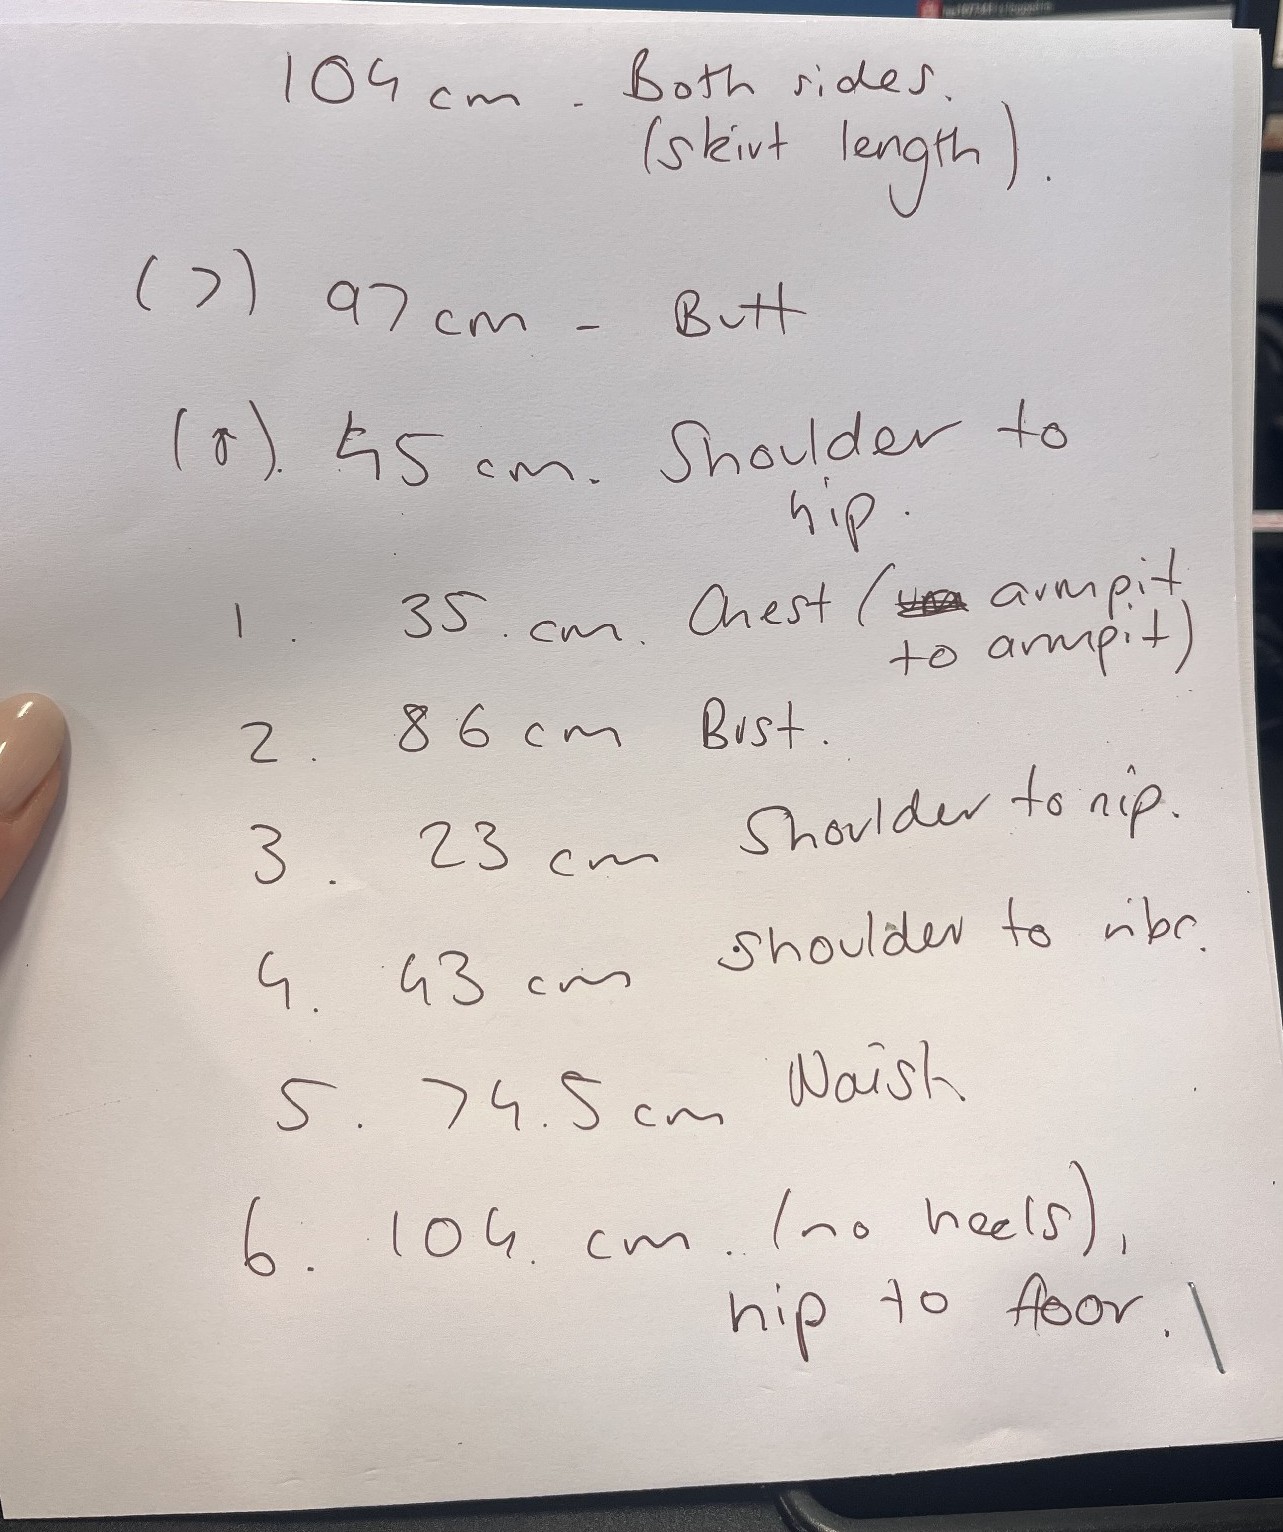 104 cm - Both sides.
(skirt length).
(7) 97 cm - Butt
45 cm. Shoulder to
hip.
1. 35. cm. Chest ( armpit
to armpit)
2. 86 cm Bust.
3. 23 cm Shoulder to nip.
4. 43 cm Shoulder to ribs.
5. 74.5 cm Waist
6. 104. cm. (no heels),
hip to floor.